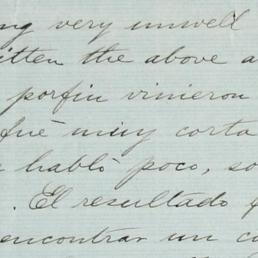 ng very unwell
itten the above a
porfin vinieron
Fué muy corta
habló poco, so
. El resultado f
encontrar un co